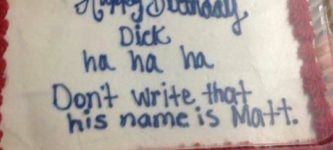 Happy Birthday
Dick
ha ha ha
Don't write that
his name is Matt.